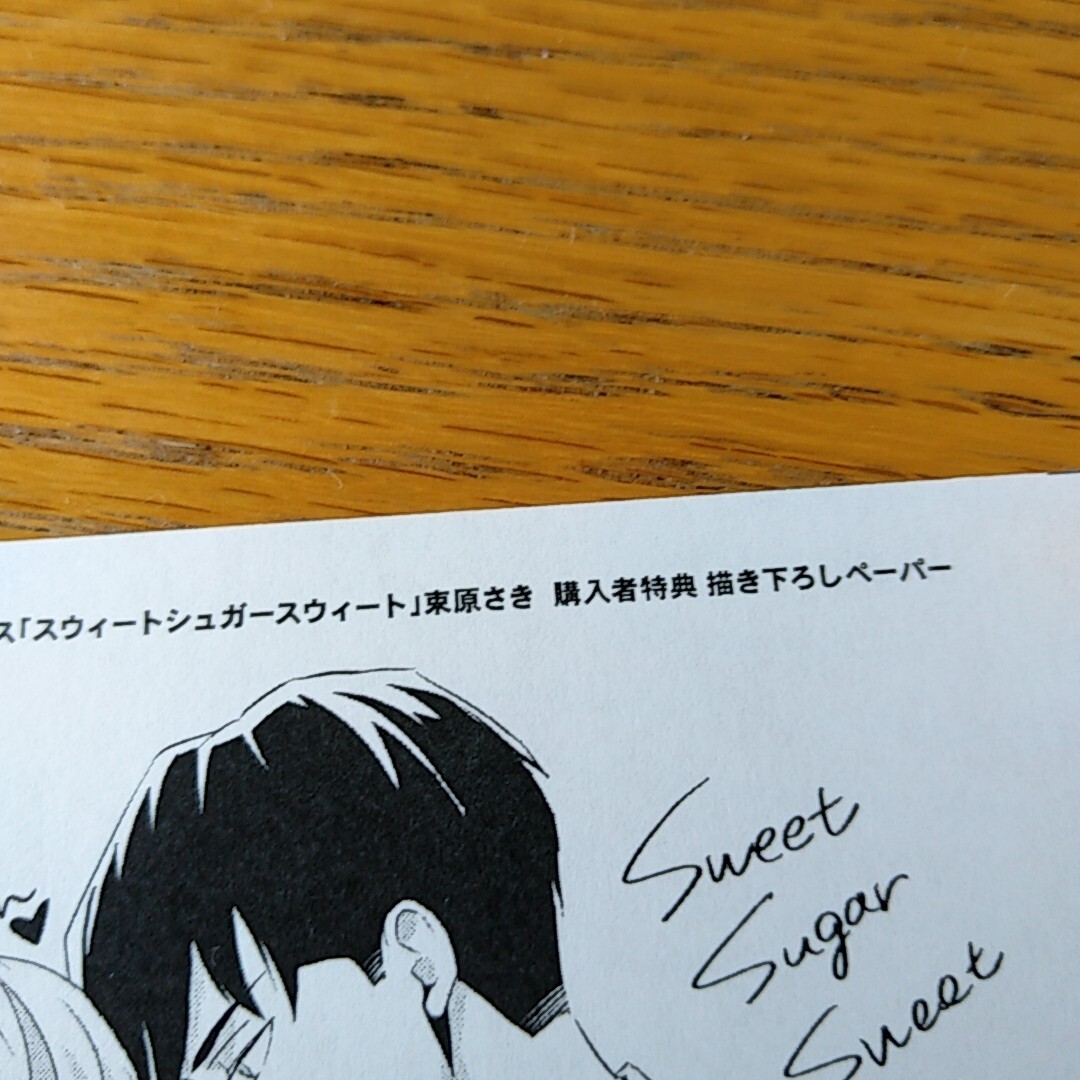 ス「スウィートシュガースウィート」束原さき 購入者特典 描き下ろしペーパー
Sweet
Sugar
Sweet